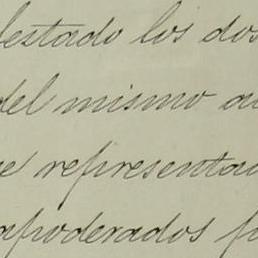 estado los dos
del mismo a
e representa
apoderados